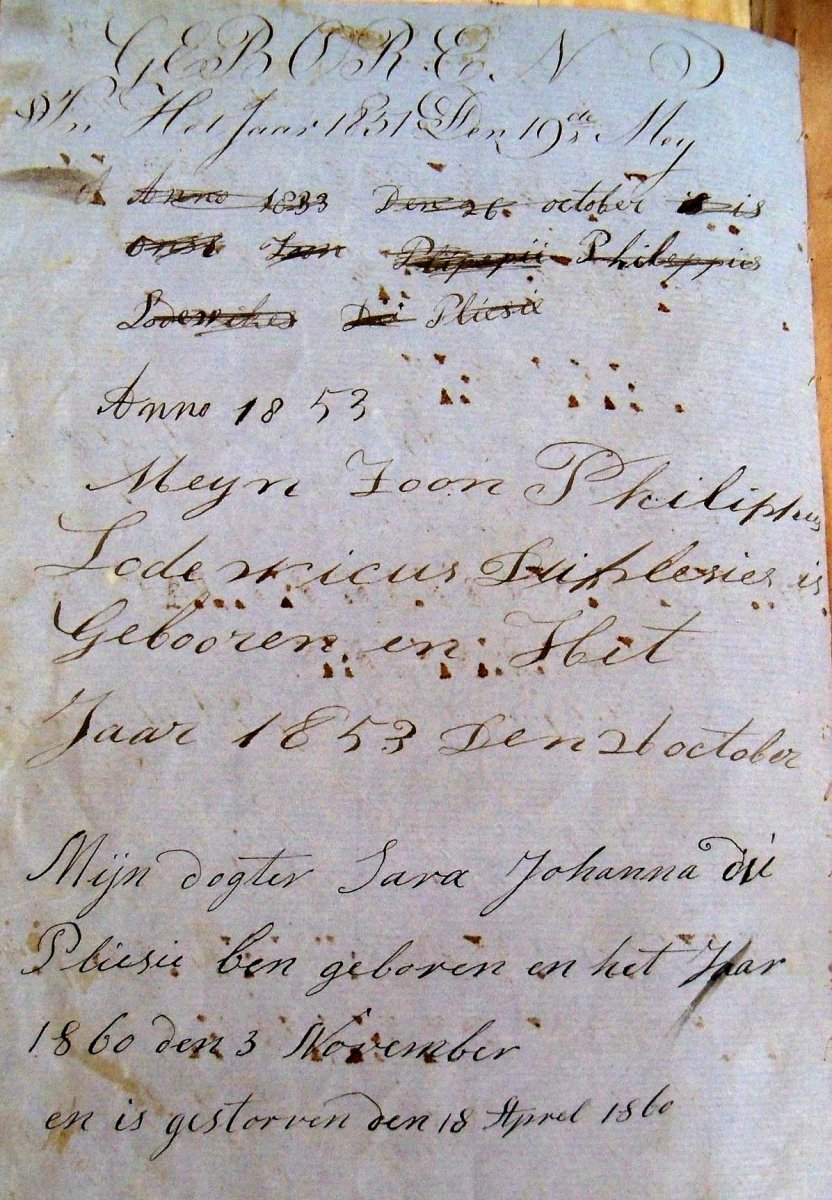 GEBOREN
In Het Jaar 1831 Den 19de Mey
Anno 1833 Den 26 october is is
onse Zoon Philippus
Lodewikes Du Pliesie
Anno 1853
Meyn Zoon Philiphus
Lodewicus Duiplesies is
Gebooren en Het
Jaar 1853 Den 26 october
Mijn dogter Sara Johanna du
Pliesie ben geboren en het Jaar
1860 den 3 November
en is gestorven den 18 Aprel 1860